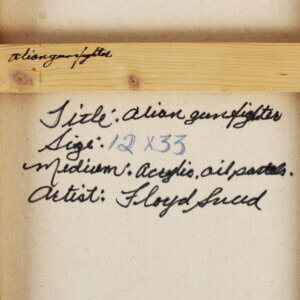 alian gunfighter
Title: alian gunfighter
Size: 12 x 33
Medium: Acrylic, oil pastels.
Artist: Floyd Sneed